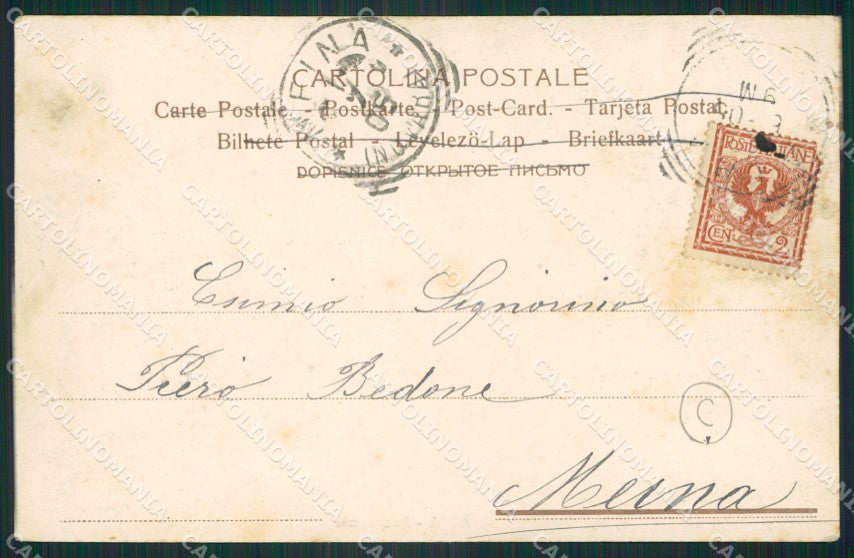 CARTOLINA POSTALE
Carte Postale - Postkarte - Post-Card. - Tarjeta Postal
Bilhete Postal - Levelezö-Lap - Briefkaart
DOPISNICE ОТКРЫТОЕ ПИСЬМО
POSTE ITALIANE
CEN. 2
Signorino
Piero Bedone
C
Meina
CARTOLINOMANIA